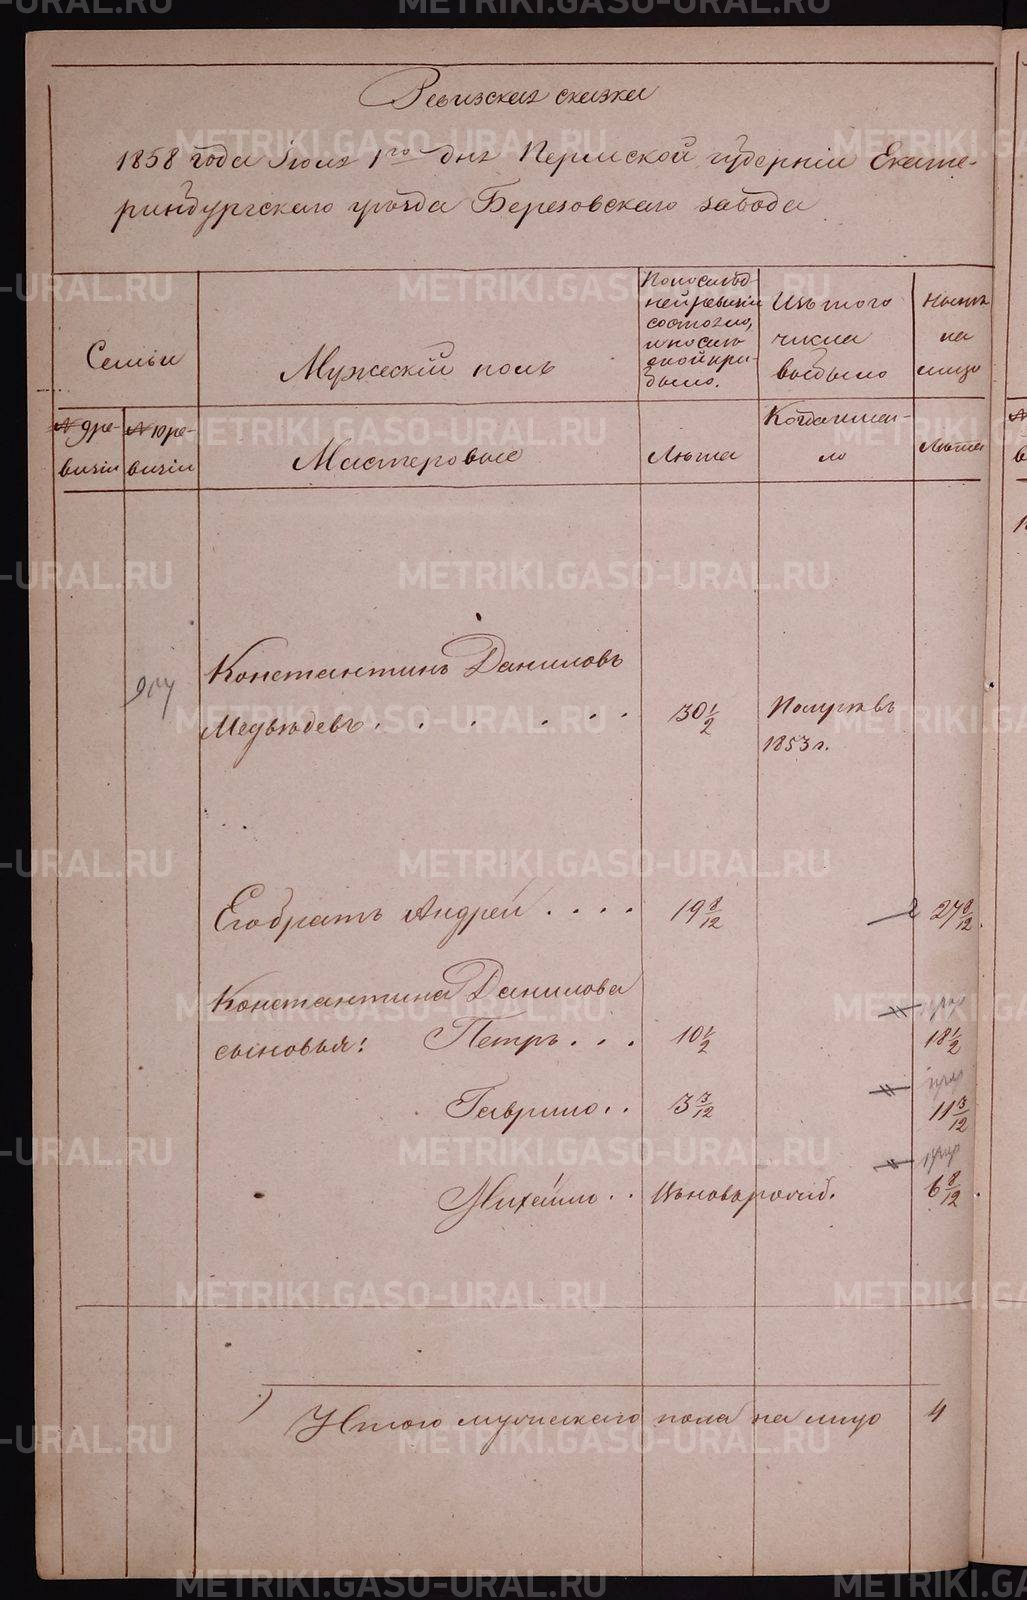 Ревизская сказка
1858 года Июля 1го дня Пермской губернии Екате-
ринбургскаго уезда Березовскаго завода
Семьи
Мужеский полъ
По послед
ней ревизии
состояло,
и после
оной при-
было.
Изъ того
числа
выбыло
Ныне
на
лицо
№ 9 ре-
визии
№ 10 ре-
визии
Мастеровые
Лѣта
Когда имен-
но
Лѣта
Константинъ Даниловъ
Медвѣдевъ . . . . . . 30 1/2
1853 г.
Его братъ Андрей . . . . 19 8/12 27 8/12
Константина Данилова
сыновья: Петръ . . . 10 1/2 18 1/2
Гаврило . . 3 3/12 11 3/12
Михайло . . 6 8/12
Итого мужескаго пола на лицо 4
METRIKI.GASO-URAL.RU